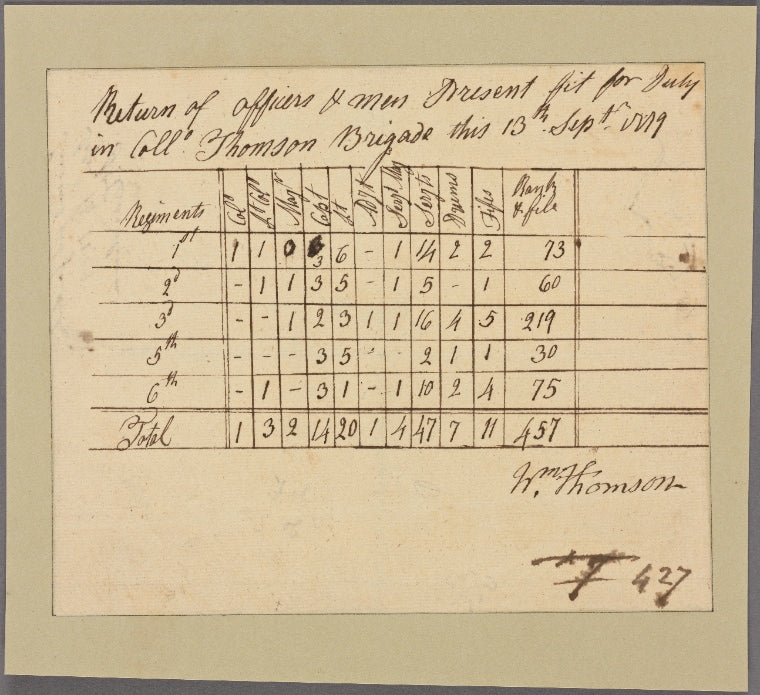 Return of officers & men Present fit for Duty
in Coll.º Thomson Brigade this 13th Sept.r 1779
Regiments Colº Lt Colº Majr Capt Lt Adjt Serjt Maj Serjts Drums Fifes Rank & file
1st 1 1 0 3 6 - 1 14 2 2 73
2d - 1 1 3 5 - 1 5 - 1 60
3d - - 1 2 3 1 1 16 4 5 219
5th - - - 3 5 - - 2 1 1 30
6th - 1 - 3 1 - 1 10 2 4 75
Total 1 3 2 14 20 1 4 47 7 11 457
Wm. Thomson
427